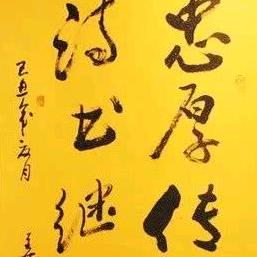 忠厚传
诗书继
己丑年月